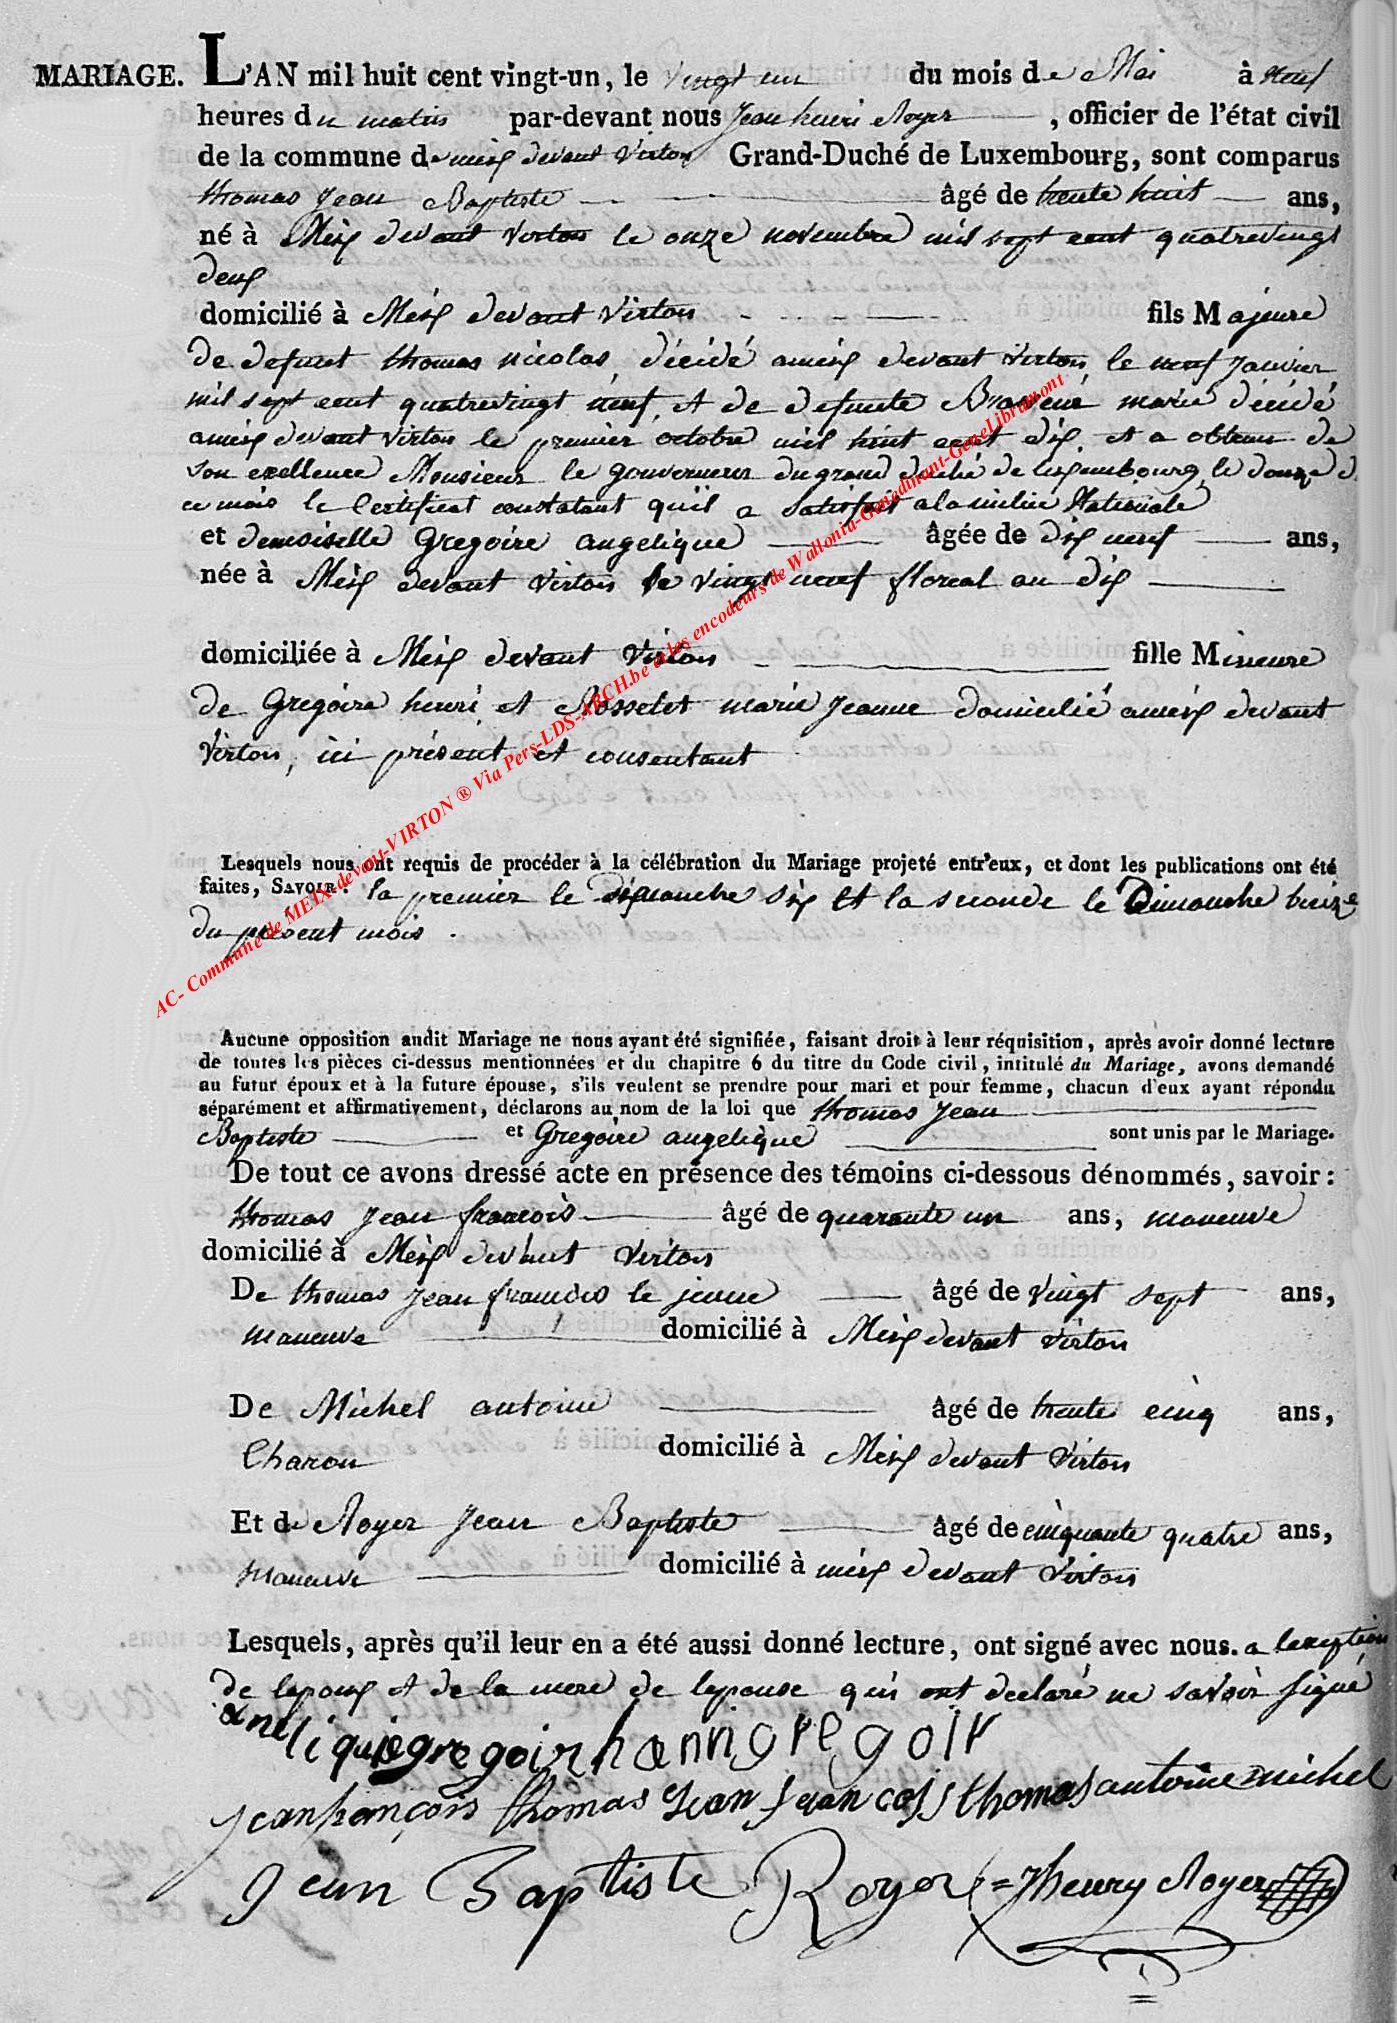 MARIAGE. L'AN mil huit cent vingt-un, le vingt un du mois de Mai à neuf
heures du matin par-devant nous Jean henri Royer, officier de l'état civil
de la commune de meix devant virton Grand-Duché de Luxembourg, sont comparus
thomas Jean Baptiste âgé de trente huit ans,
né à Meix devant virton le onze novembre mil sept cent quatrevingt
deux
domicilié à Meix devant virton fils Majeure
de defunt thomas nicolas, décédé a meix devant virton le neuf Janvier
mil sept cent quatrevingt neuf, et de defunte marie décédé
a meix devant virton le premier octobre mil huit cent dix, et a obtenu de
son exellence Monsieur le gouverneur du grand duché de luxembourg le douze d
ce mois le Certificat constatant qu'il a satisfait a la milice Nationale
et demoiselle Gregoire angelique âgée de dix neuf ans,
née à Meix devant virton le vingt neuf floreal an dix
domiciliée à Meix devant virton fille Mineure
de Gregoire henri et Rosselet marie Jeanne domicilié a meix devant
virton, ici présent et consentant
Lesquels nous ont requis de procéder à la célébration du Mariage projeté entr'eux, et dont les publications ont été
faites, SAVOIR: la premier le dimanche six et la seconde le Dimanche treize
du présent mois.
Aucune opposition audit Mariage ne nous ayant été signifiée, faisant droit à leur réquisition, après avoir donné lecture
de toutes les pièces ci-dessus mentionnées et du chapitre 6 du titre du Code civil, intitulé du Mariage, avons demandé
au futur époux et à la future épouse, s'ils veulent se prendre pour mari et pour femme, chacun d'eux ayant répondu
séparément et affirmativement, déclarons au nom de la loi que thomas Jean
Baptiste et Gregoire angelique sont unis par le Mariage.
De tout ce avons dressé acte en présence des témoins ci-dessous dénommés, savoir:
thomas Jean françois âgé de quarante un ans, maneuve
domicilié à Meix devant virton
De thomas Jean francois le jeune âgé de vingt sept ans,
maneuve domicilié à Meix devant virton
De Michel antoine âgé de trente cinq ans,
Charon domicilié à Meix devant virton
Et de Royer Jean Baptiste âgé de cinquante quatre ans,
maneuve domicilié à meix devant virton
Lesquels, après qu'il leur en a été aussi donné lecture, ont signé avec nous. a lexeption
de lepoux et de la mere de lepouse qui ont declaré ne savoir signé
aneliquegregoir hannri gregoir
jean françois thomas Jean francois thomas antoine michel
Jean Baptiste Royer Jhenry Royer
AC- Commune de MEIX-devant-VIRTON ® Via Pers-LDS-ARCH.be et les encodeurs de Wallonia-Genedinant-GeneLibramont